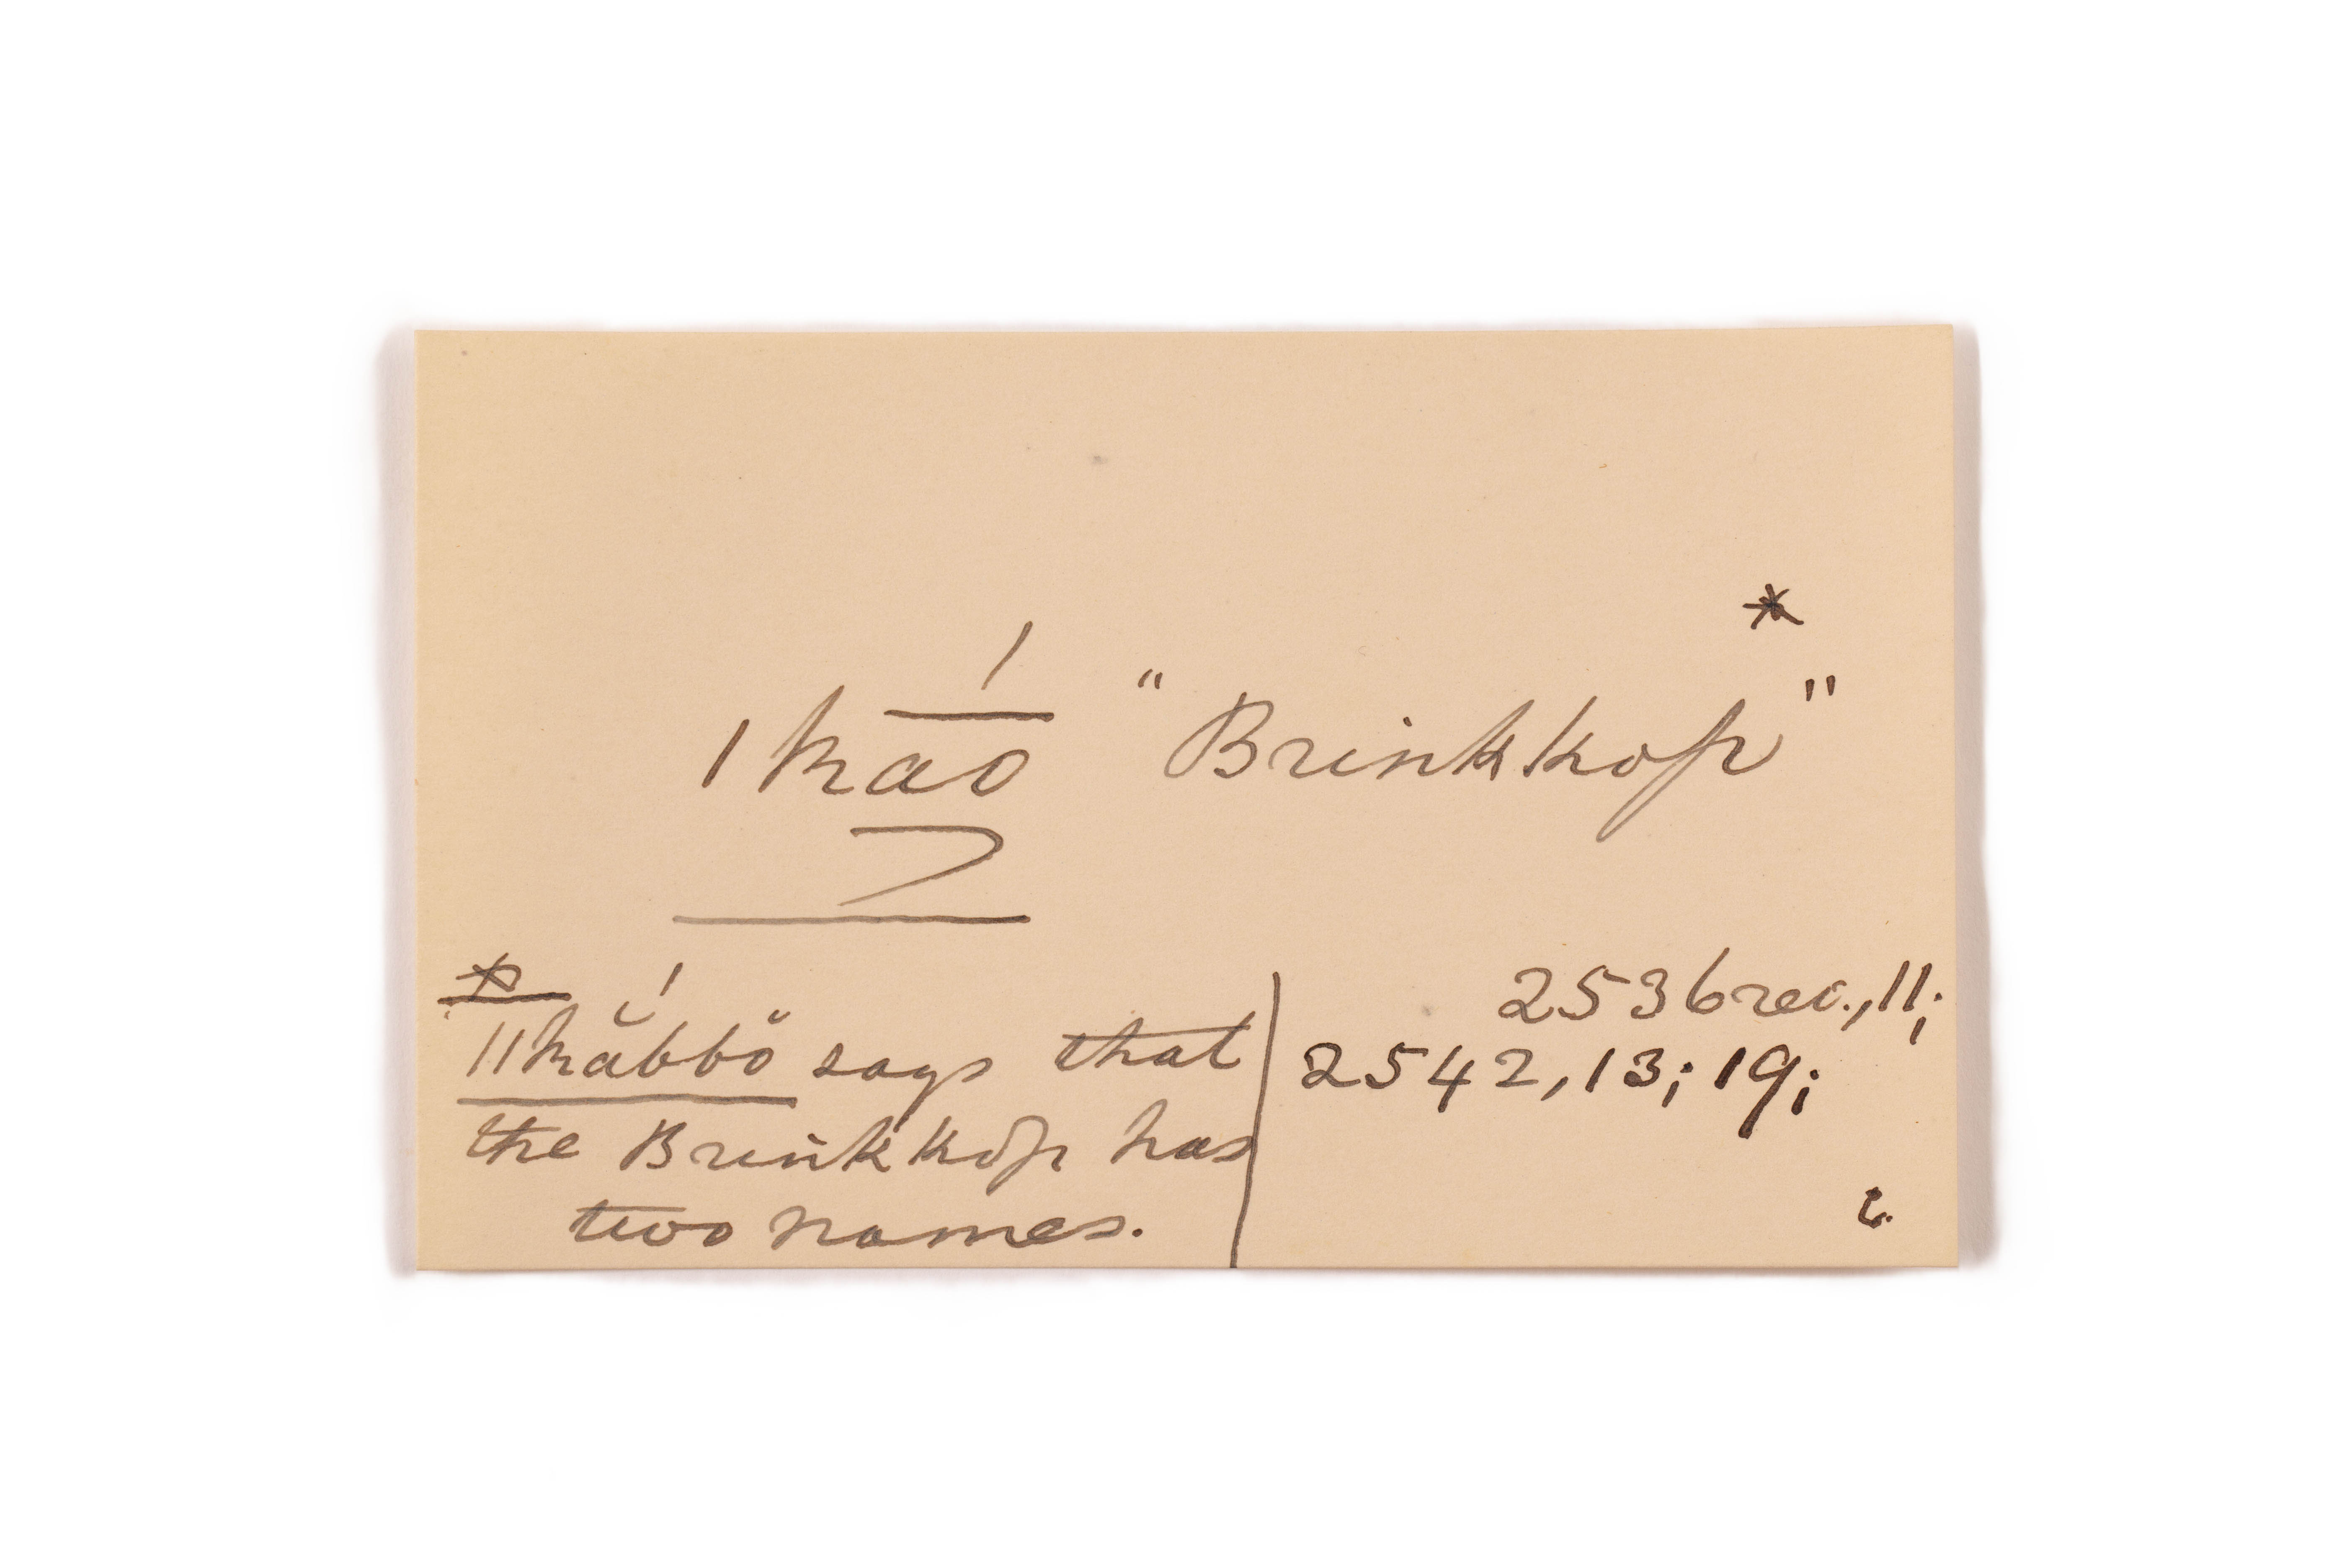 *
|k͞áo "Brinkkop"
*
||kăbbŏ́ says that
the Brinkkop has
two names.
2536 rev., 11;
2542, 13; 19;